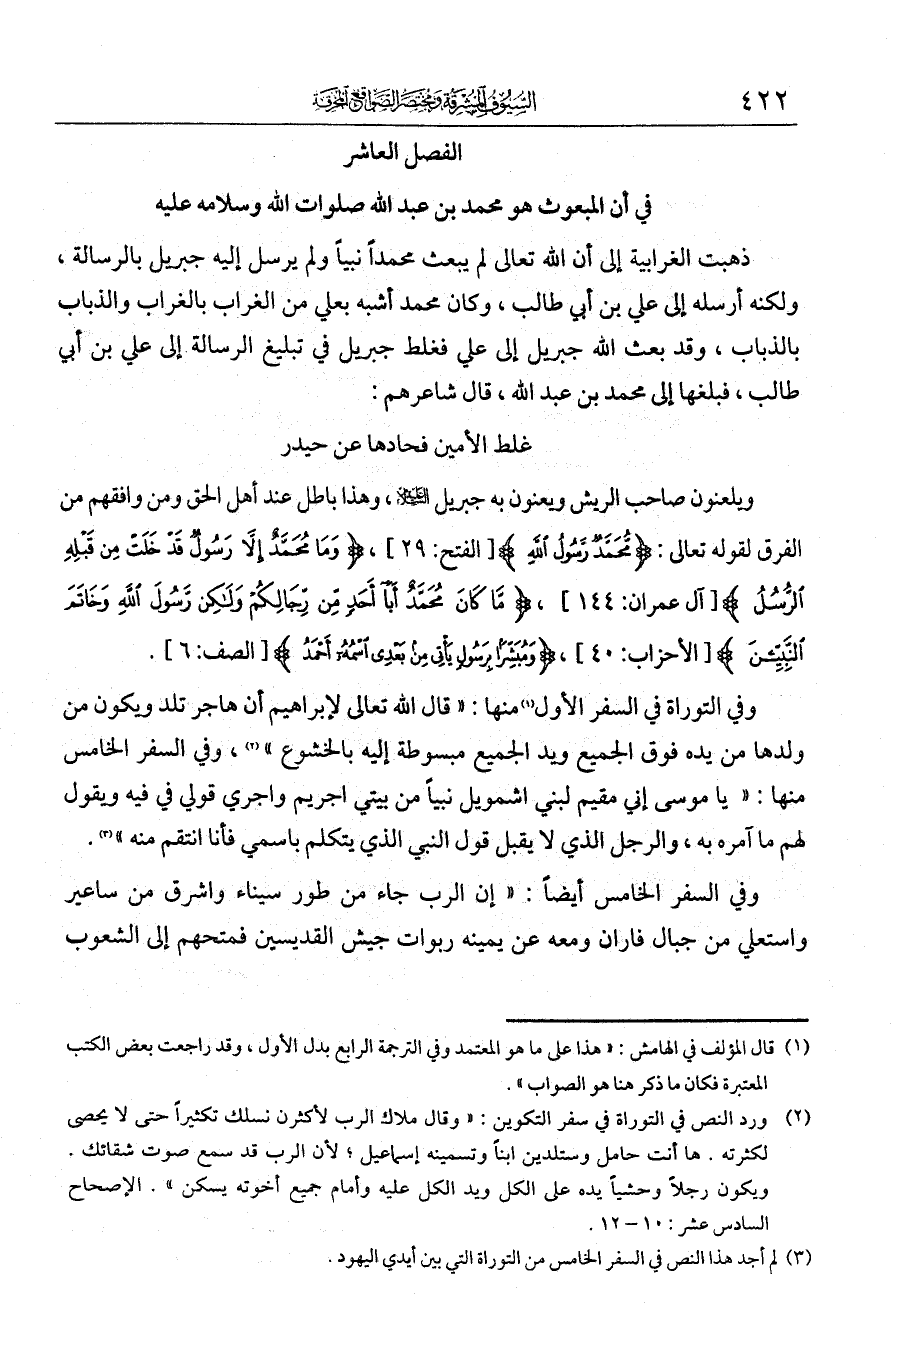 ٤٢٢ السيوف المشرقة ومختصر الصواقع المحرقة
الفصل العاشر
في أن المبعوث هو محمد بن عبد الله صلوات الله وسلامه عليه
ذهبت الغرابية إلى أن الله تعالى لم يبعث محمداً نبياً ولم يرسل إليه جبريل بالرسالة ،
ولكنه أرسله إلى علي بن أبي طالب ، وكان محمد أشبه بعلي من الغراب بالغراب والذباب
بالذباب ، وقد بعث الله جبريل إلى علي فغلط جبريل في تبليغ الرسالة إلى علي بن أبي
طالب ، فبلغها إلى محمد بن عبد الله ، قال شاعرهم :
غلط الأمين فحادها عن حيدر
ويلعنون صاحب الريش ويعنون به جبريل عليه السلام ، وهذا باطل عند أهل الحق ومن وافقهم من
الفرق لقوله تعالى : ﴿ مُّحَمَّدٌ رَّسُولُ ٱللَّهِ ﴾ [ الفتح: ٢٩ ] ، ﴿ وَمَا مُحَمَّدٌ إِلَّا رَسُولٌ قَدْ خَلَتْ مِن قَبْلِهِ
ٱلرُّسُلُ ﴾ [ آل عمران: ١٤٤ ] ، ﴿ مَّا كَانَ مُحَمَّدٌ أَبَآ أَحَدٍ مِّن رِّجَالِكُمْ وَلَٰكِن رَّسُولَ ٱللَّهِ وَخَاتَمَ
ٱلنَّبِيِّـۧنَ ﴾ [ الأحزاب: ٤٠ ] ، ﴿ وَمُبَشِّرًۢا بِرَسُولٍ يَأْتِى مِنۢ بَعْدِى ٱسْمُهُۥٓ أَحْمَدُ ﴾ [ الصف: ٦ ] .
وفي التوراة في السفر الأول(١) منها : « قال الله تعالى لإبراهيم أن هاجر تلد ويكون من
ولدها من يده فوق الجميع ويد الجميع مبسوطة إليه بالخشوع »(٢) ، وفي السفر الخامس
منها : « يا موسى إني مقيم لبني اشمويل نبياً من بيتي اجريم واجري قولي في فيه ويقول
لهم ما آمره به ، والرجل الذي لا يقبل قول النبي الذي يتكلم باسمي فأنا انتقم منه »(٣) .
وفي السفر الخامس أيضاً : « إن الرب جاء من طور سيناء واشرق من ساعير
واستعلي من جبال فاران ومعه عن يمينه ربوات جيش القديسين فمتحهم إلى الشعوب
(١) قال المؤلف في الهامش : « هذا على ما هو المعتمد وفي الترجمة الرابع بدل الأول ، وقد راجعت بعض الكتب
المعتبرة فكان ما ذكر هنا هو الصواب » .
(٢) ورد النص في التوراة في سفر التكوين : « وقال ملاك الرب لأكثرن نسلك تكثيراً حتى لا يحصى
لكثرته . ها أنت حامل وستلدين ابناً وتسمينه إسماعيل ؛ لأن الرب قد سمع صوت شقائك .
ويكون رجلاً وحشياً يده على الكل ويد الكل عليه وأمام جميع أخوته يسكن » . الإصحاح
السادس عشر : ١٠ – ١٢ .
(٣) لم أجد هذا النص في السفر الخامس من التوراة التي بين أيدي اليهود .